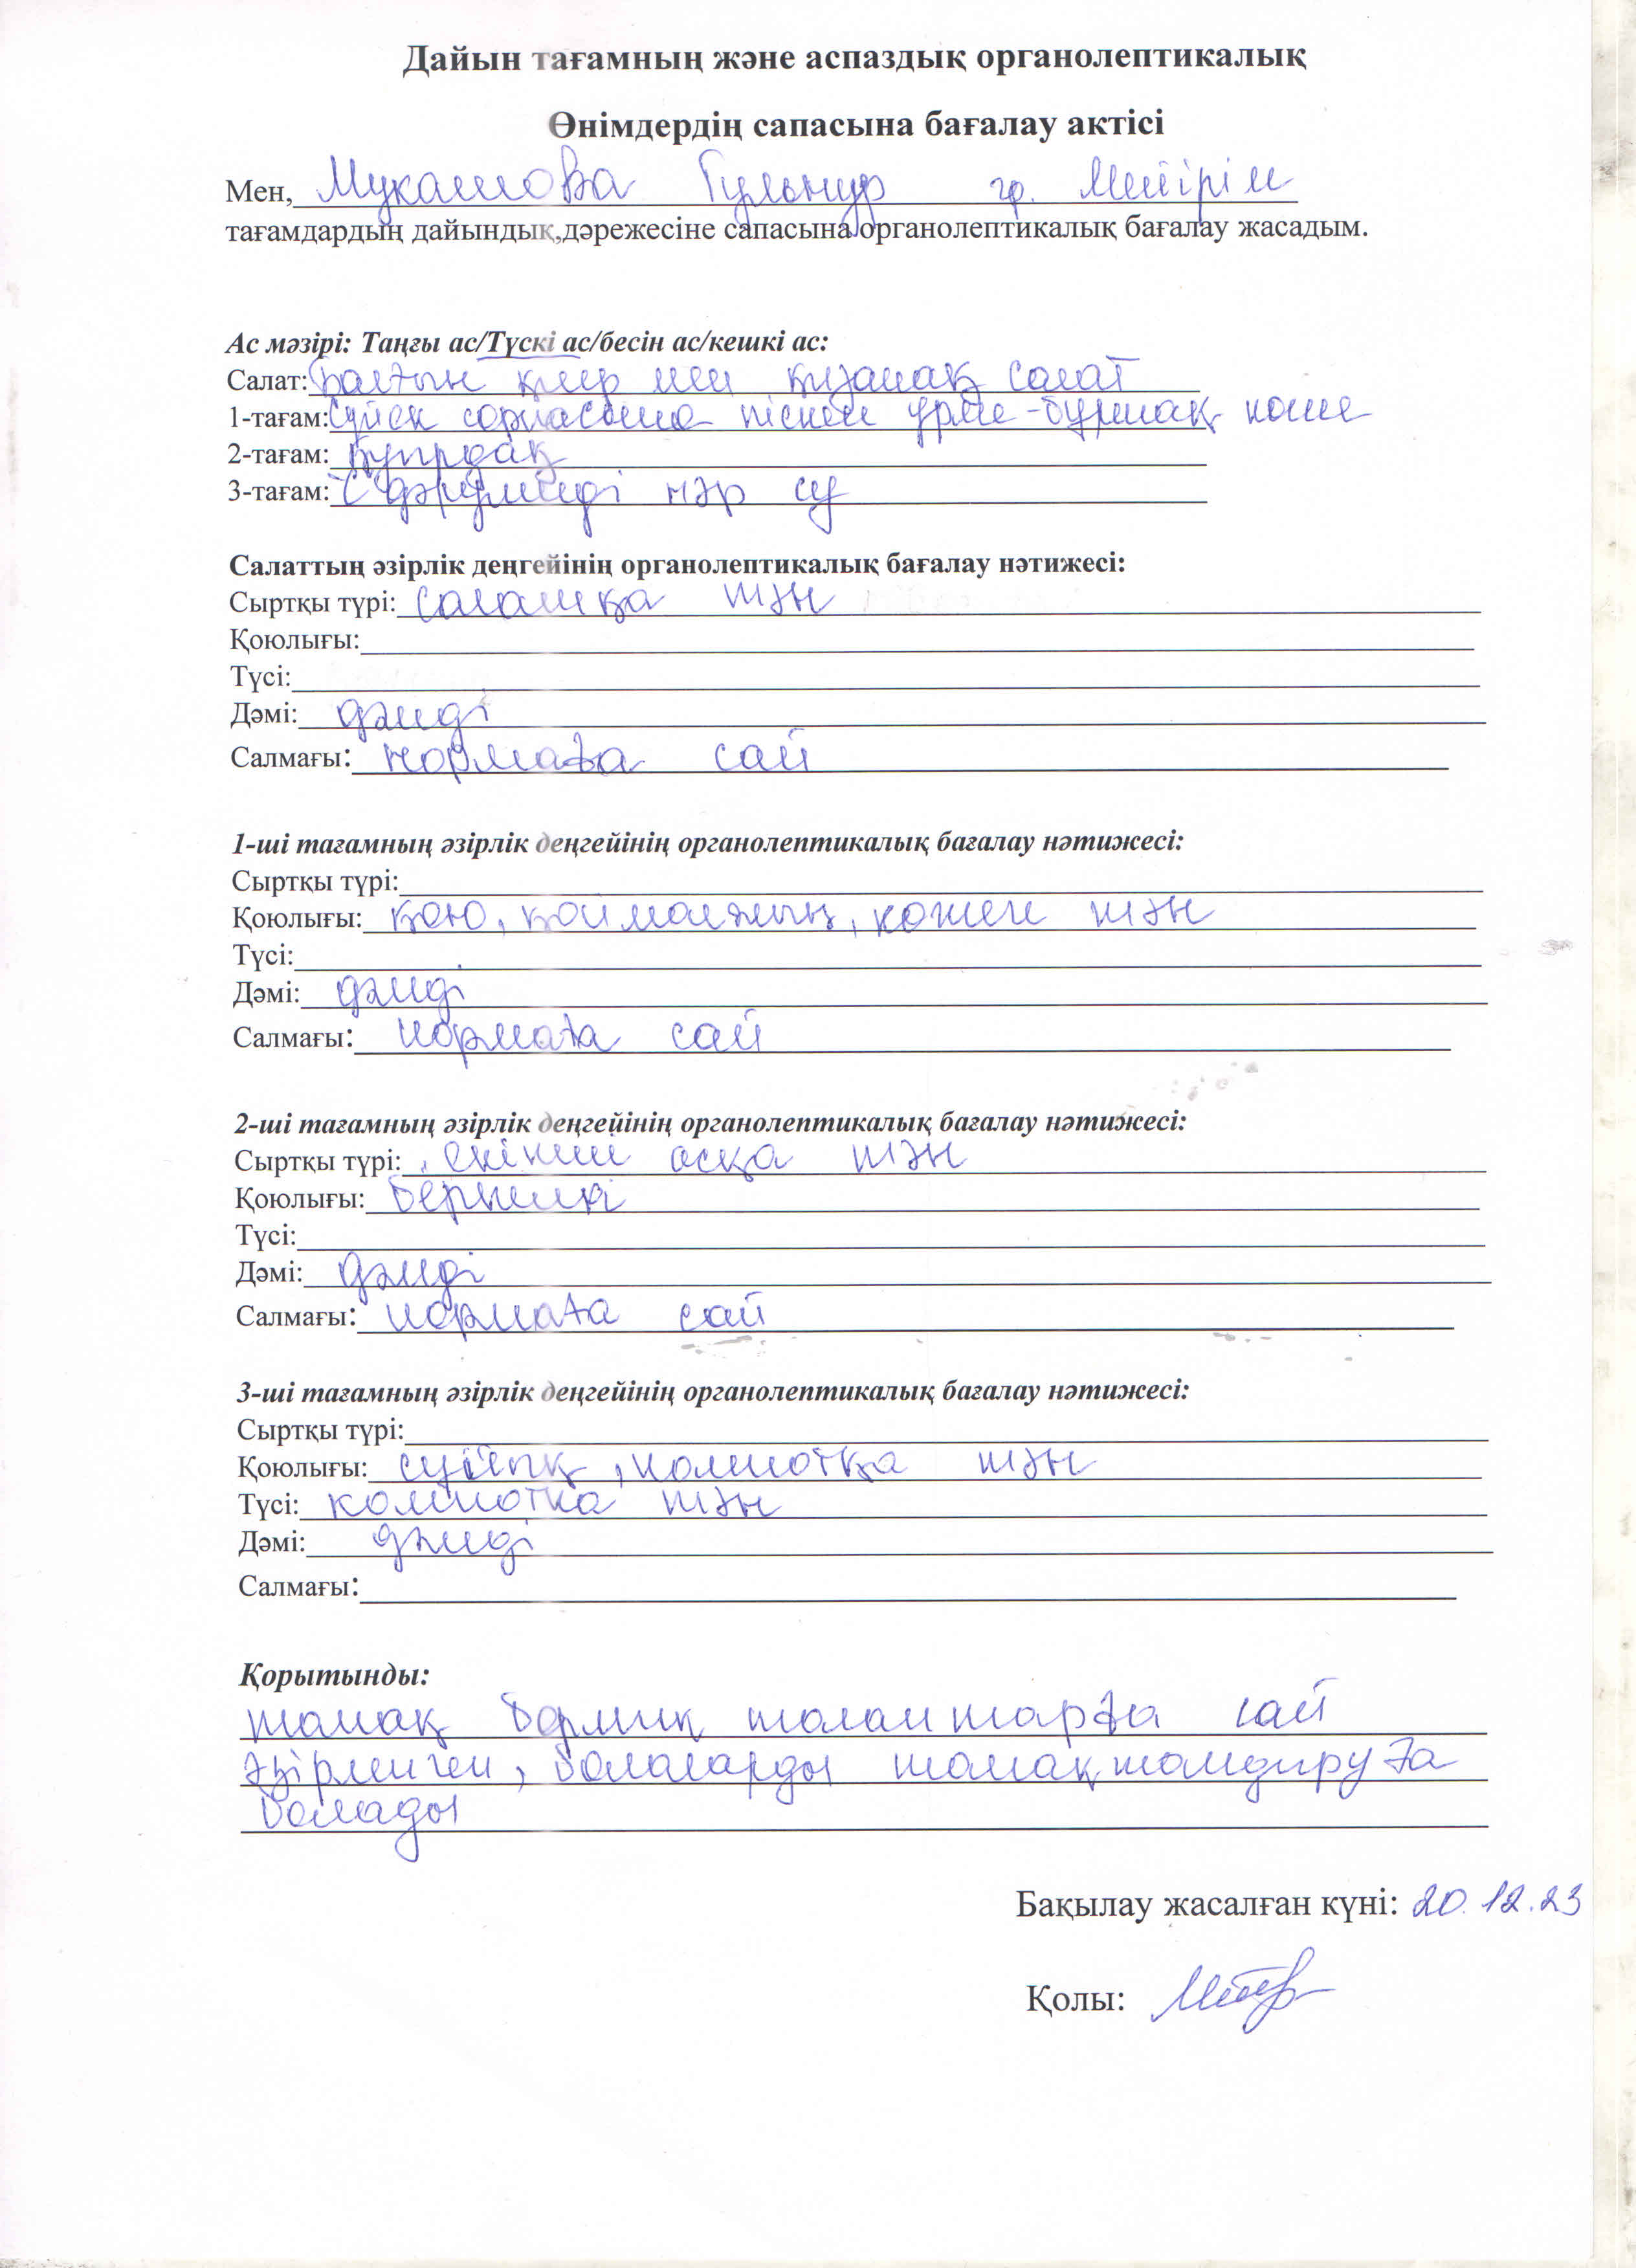 Дайын тағамның және аспаздық органолептикалық
Өнімдердің сапасына бағалау актісі
Мен, Мукашова Гульнур гр. Мейірім
тағамдардың дайындық,дәрежесіне сапасына органолептикалық бағалау жасадым.
Ас мәзірі: Таңғы ас/Түскі ас/бесін ас/кешкі ас:
Салат: Балғын қияр мен қызанақ салат
1-тағам: Сүйек сорпасына піскен үрме-бұршақ көже
2-тағам: Қуырдақ
3-тағам: С дәрумінді нәр су
Салаттың әзірлік деңгейінің органолептикалық бағалау нәтижесі:
Сыртқы түрі: салатқа тән
Қоюлығы:
Түсі:
Дәмі: дәмді
Салмағы: нормаға сай
1-ші тағамның әзірлік деңгейінің органолептикалық бағалау нәтижесі:
Сыртқы түрі:
Қоюлығы: қою, қоймалжың, көжеге тән
Түсі:
Дәмі: дәмді
Салмағы: нормаға сай
2-ші тағамның әзірлік деңгейінің органолептикалық бағалау нәтижесі:
Сыртқы түрі: екінші асқа тән
Қоюлығы:
Түсі:
Дәмі: дәмді
Салмағы: нормаға сай
3-ші тағамның әзірлік деңгейінің органолептикалық бағалау нәтижесі:
Сыртқы түрі:
Қоюлығы: сұйық, компотқа тән
Түсі: компотқа тән
Дәмі: дәмді
Салмағы:
Қорытынды:
тамақ барлық талаптарға сай
әзірленген, балаларды тамақтандыруға
болады
Бақылау жасалған күні: 20.12.23
Қолы: